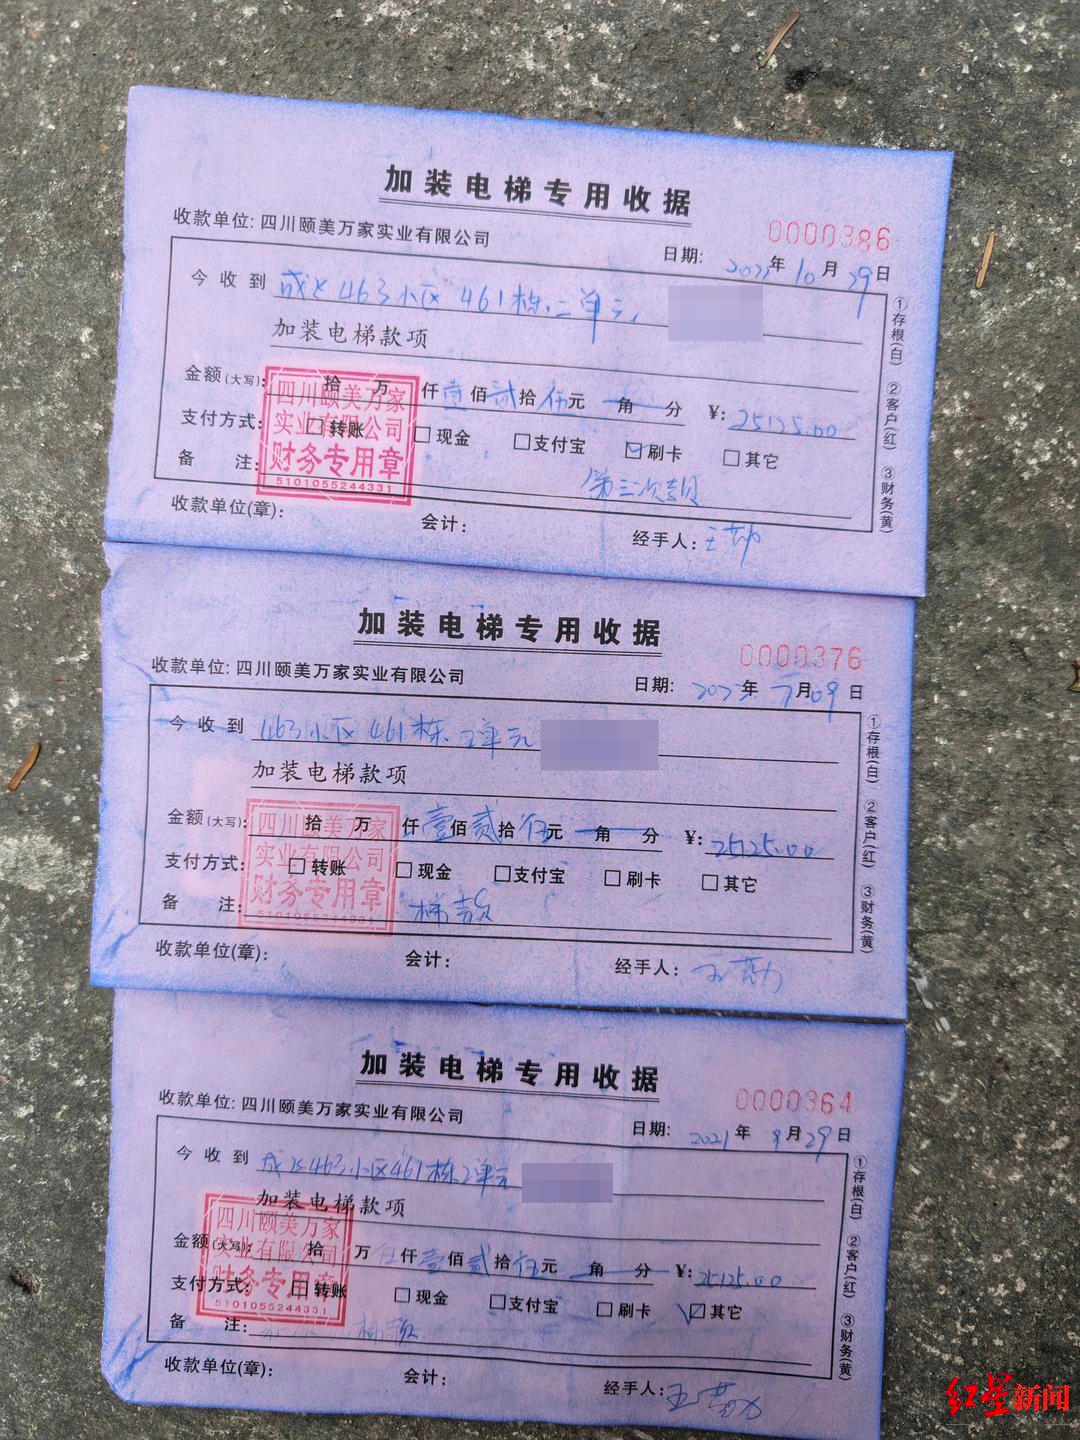 加装电梯专用收据
收款单位: 四川颐美万家实业有限公司
0000386
日期: 年 10 月 29 日
今收到 成达463小区 461栋.二单元
加装电梯款项
金额(大写): 拾 万 仟 壹 佰 贰 拾 伍 元 角 分 ¥: 25125.00
支付方式: 转账 现金 支付宝 刷卡 其它
备 注: 第三次款
收款单位(章): 会计: 经手人: 王
四川颐美万家
实业有限公司
财务专用章
5101055244331
①存根(白) ②客户(红) ③财务(黄)
加装电梯专用收据
收款单位: 四川颐美万家实业有限公司
0000376
日期: 年 月 09 日
今收到 463小区 461栋 单元
加装电梯款项
金额(大写): 拾 万 仟 壹 佰 贰 拾 伍 元 角 分 ¥: 25125.00
支付方式: 转账 现金 支付宝 刷卡 其它
备 注: 梯款
收款单位(章): 会计: 经手人: 王
四川颐美万家
实业有限公司
财务专用章
5101055244331
①存根(白) ②客户(红) ③财务(黄)
加装电梯专用收据
收款单位: 四川颐美万家实业有限公司
0000364
日期: 2021 年 月 29 日
今收到 463小区461栋2单元
加装电梯款项
金额(大写): 拾 万 伍 仟 壹 佰 贰 拾 伍 元 角 分 ¥: 25125.00
支付方式: 转账 现金 支付宝 刷卡 其它
备 注: 梯款
收款单位(章): 会计: 经手人: 王
四川颐美万家
实业有限公司
财务专用章
5101055244331
①存根(白) ②客户(红) ③财务(黄)
红星新闻